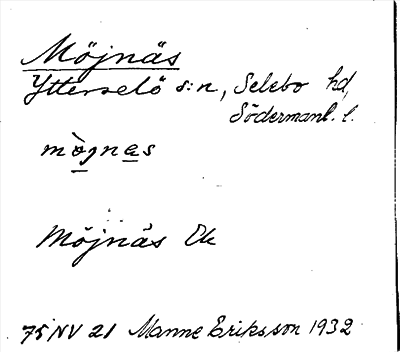 Möjnäs
Ytterselö s:n, Selebo hd,
Södermanl. l.
mògnes
Möjnäs Ek
75 NV 21 Manne Eriksson 1932